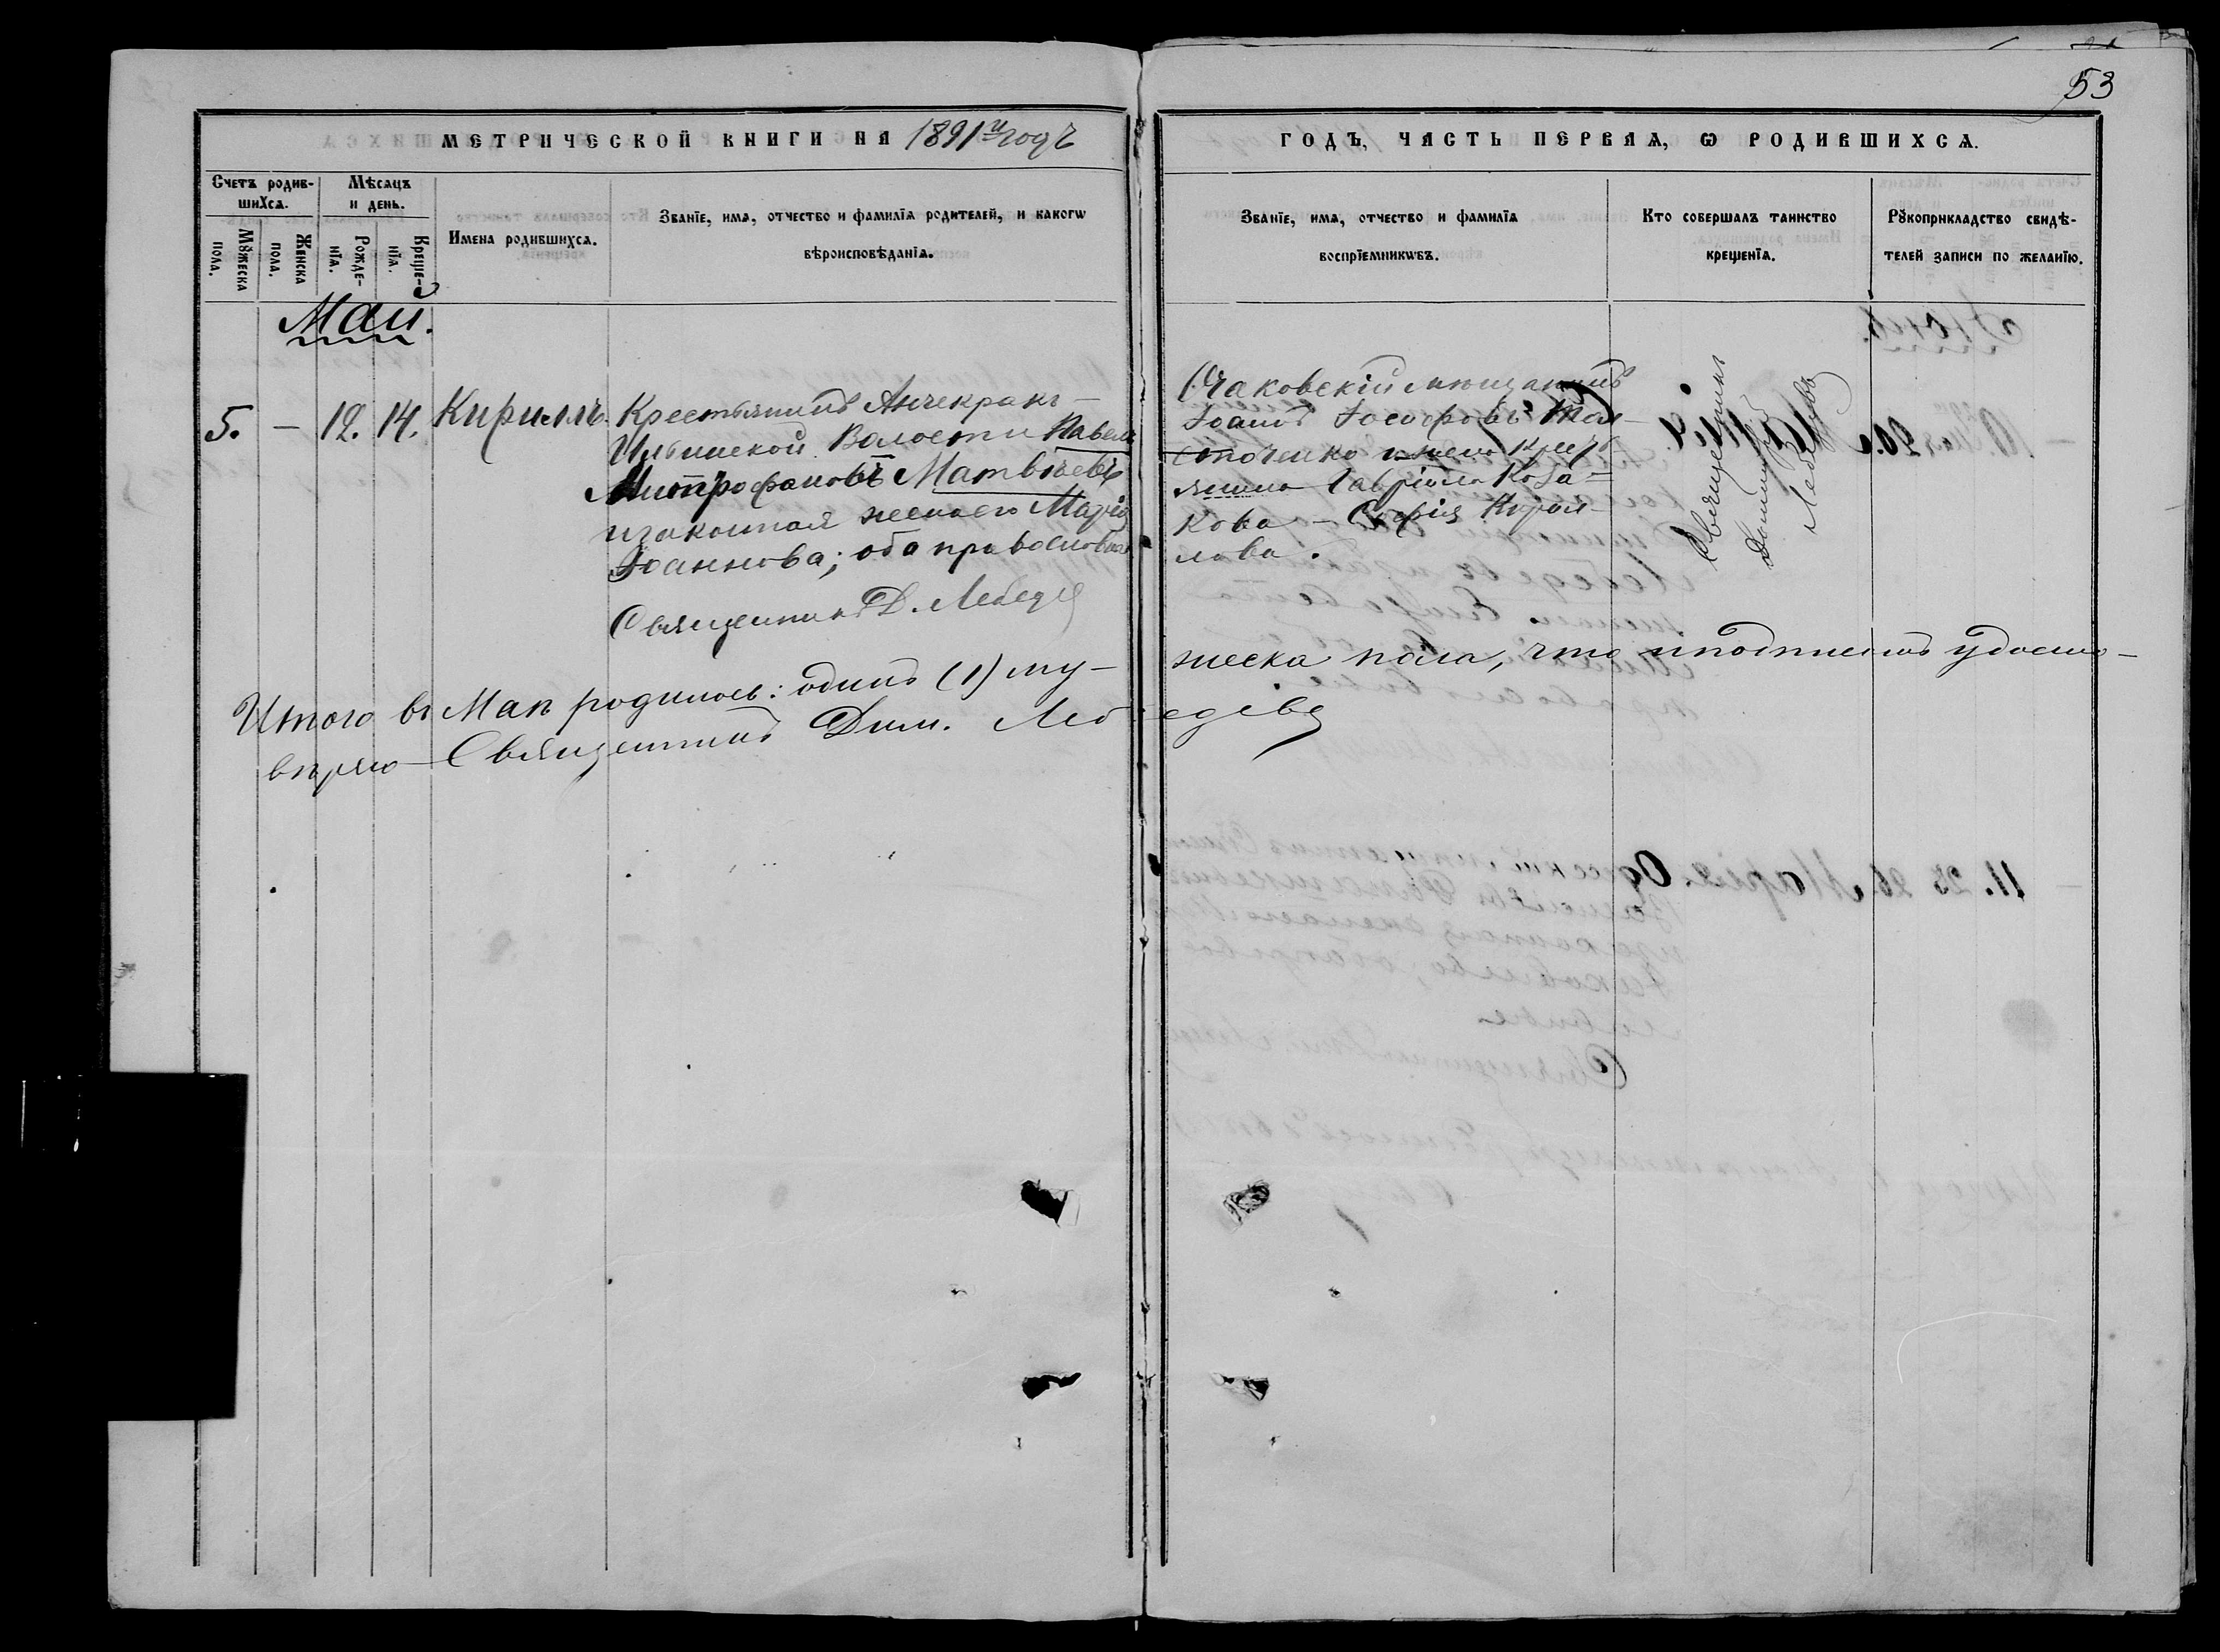 53
МЕТРИЧЕСКОЙ КНИГИ НА 1891й годъ
ГОДЪ, ЧАСТЬ ПЕРВАѦ, Ѡ РОДИВШИХСѦ.
Счетъ родив-
шихсѧ.
Мѣсѧцъ
и день.
Мꙋжеска
пола.
Женска
пола.
Рожде-
нїѧ.
Креще-
нїѧ.
Имена родившихсѧ.
Званїе, имѧ, отчество и фамилїѧ родителей, и какогѡ
вѣроисповѣданїѧ.
Званїе, имѧ, отчество и фамилїѧ
воспрїемникѡвъ.
Кто совершалъ таинство
крещенїѧ.
Рꙋкоприкладство свидѣ-
телей записи по желанїю.
Май.
5. — 12. 14. Кириллъ.
Крестьянинъ Анчекракъ-
Ильинской Волости Павелъ
Митрофановъ Матвѣевъ
и законная жена его Марія
Іоаннова; оба православные
Священникъ Д. Лебедев
Очаковскій мѣщанинъ
Іоаннъ Іосифовъ
и жена кресть-
янина Гавріила Коза-
кова – Софія Кирил-
лова.
Священникъ
Димитрій
Лебедевъ
Итого въ Маѣ родилось: одинъ (1) му-
жеска пола, что и подписомъ удосто-
вѣряю Священникъ Дим. Лебедевъ